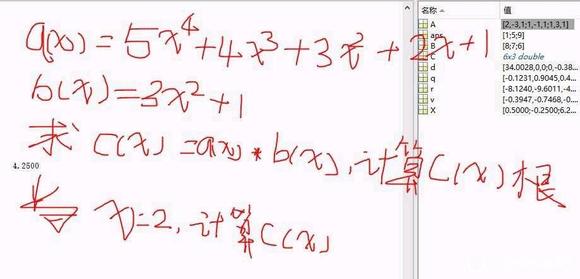 a(x)=5x⁴+4x³+3x²+2x+1
b(x)=3x²+1
求 C(x)=a(x)*b(x),计算C(x)根
4.2500
x=2,计算C(x)
名称 值
A [2,-3,1;1,-1,1;1,3,1]
ans [1;5;9]
B [8;7;6]
C 6x3 double
d [34.0028,0,0;0,-0.38...
q [-0.1231,0.9045,0.4...
r [-8.1240,-9.6011,-4...
v [-0.3947,-0.7468,-0...
X [0.5000;-0.2500;6.2...